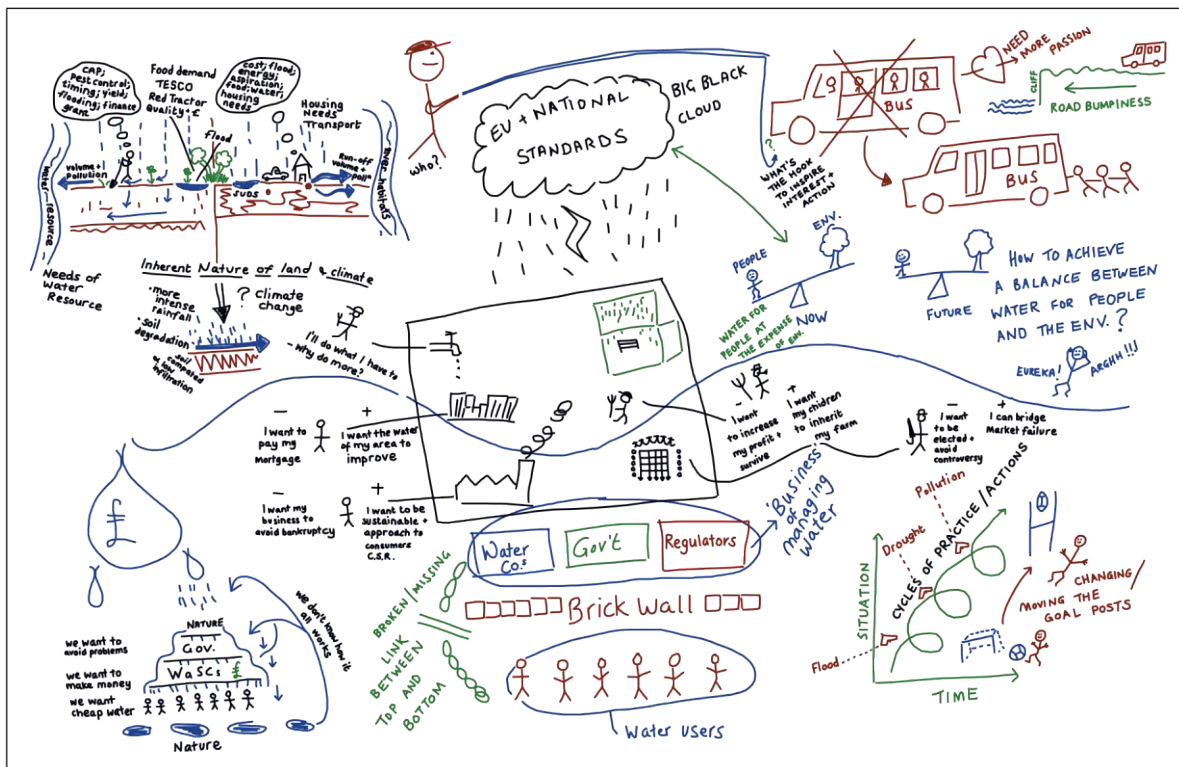 CAP;
Pest control;
timing; yield;
flooding; finance
grant
Food demand
TESCO
Red Tractor
Quality + £
flood
cost; flood;
energy;
aspiration;
food; water;
housing
needs
Housing
Needs
Transport
volume +
Pollution
SUDS
Run-off
volume +
poll"
water resource
river habitats
Needs of
Water
Resource
Inherent Nature of land & climate
• more
intense
rainfall
• soil
degradation
• soil
compacted
& low
infiltration
? Climate
change
I'll do what I have to
- why do more?
WHO?
EU + NATIONAL
STANDARDS
BIG BLACK
CLOUD
?
WHAT'S
THE HOOK
TO INSPIRE
INTEREST +
ACTION
BUS
NEED
MORE
PASSION
CLIFF
ROAD BUMPINESS
BUS
PEOPLE
ENV.
NOW
WATER FOR
PEOPLE AT
THE EXPENSE
OF ENV.
FUTURE
HOW TO ACHIEVE
A BALANCE BETWEEN
WATER FOR PEOPLE
AND THE ENV. ?
EUREKA!
ARGHH!!!
-
I want to
pay my
Mortgage
+
I want the water
of my area to
improve
-
I want my
business to
avoid bankruptcy
+
I want to be
sustainable +
approach to
consumers
C.S.R.
-
I want
to increase
my profit +
survive
+
I want
my chidren
to inherit
my farm
-
I want
to be
elected +
avoid
controversy
+
I can bridge
Market failure
£
NATURE
GOV.
WaSCs £
we want to
avoid problems
we want to
make money
we want
cheap water
Nature
we don't know how it
all works
Water
Co.s
Gov't
Regulators
'Business'
of
managing
water
BROKEN/MISSING
LINK
BETWEEN
TOP AND
BOTTOM
Brick Wall
Water users
SITUATION
TIME
CYCLES OF PRACTICE/ACTIONS
Flood
Drought
Pollution
CHANGING/
MOVING THE
GOAL POSTS